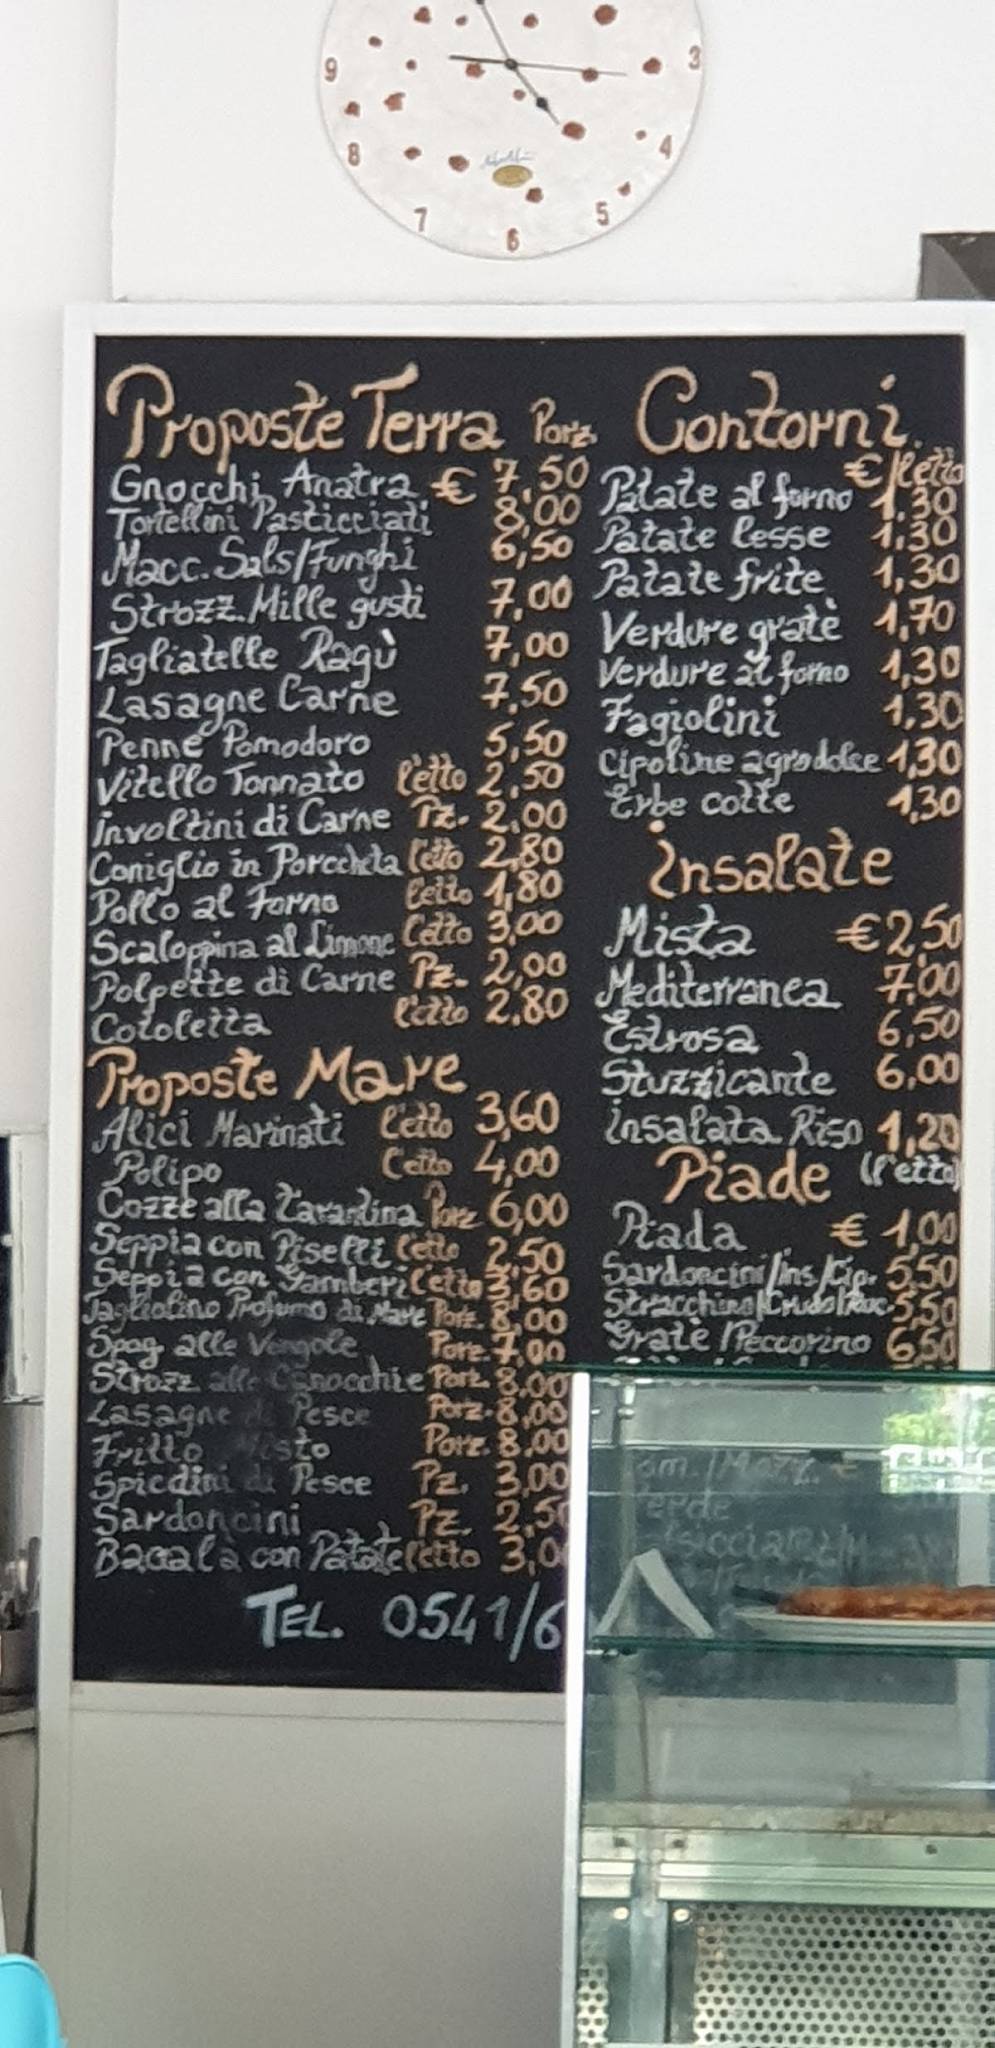 9
3
8
4
7
5
6
Proposte Terra Porz.
Gnocchi Anatra € 7,50
Tortellini Pasticciati 8,00
Macc. Sals/Funghi 6,50
Strozz. Mille gusti 7,00
Tagliatelle Ragù 7,00
Lasagne Carne 7,50
Penne Pomodoro 5,50
Vitello Tonnato l'etto 2,50
involtini di Carne Pz. 2,00
Coniglio in Porccheta l'etto 2,80
Pollo al Forno l'etto 1,80
Scaloppina al Limone l'etto 3,00
Polpette di Carne Pz. 2,00
Cotoletta l'etto 2,80
Proposte Mare
Alici Marinati l'etto 3,60
Polipo l'etto 4,00
Cozze alla Tarantina Porz 6,00
Seppia con Piselli l'etto 2,50
Seppia con Gamberi l'etto 3,60
Tagliolino Profumo di Mare Porz. 8,00
Spag. alle Vongole Porz. 7,00
Strozz alle Canocchie Porz. 8,00
Lasagne di Pesce Porz. 8,00
Fritto Misto Porz. 8,00
Spiedini di Pesce Pz. 3,00
Sardoncini Pz. 2,50
Bacalà con Patate l'etto 3,0
TEL. 0541/6
Contorni
€/l'etto
Patate al forno 1,30
Patate lesse 1,30
Patate frite 1,30
Verdure gratè 1,70
Verdure al forno 1,30
Fagiolini 1,30
Cipoline agrodolce 1,30
Erbe cotte 1,30
insalate
Mista € 2,50
Mediterranea 7,00
Estrosa 6,50
Stuzzicante 6,00
insalata Riso 1,20
Piade (l'etto)
Piada € 1,00
Sardoncini/ins/Cip. 5,50
Stracchino/Crudo/Ruc. 5,50
Gratè/Peccorino 6,50